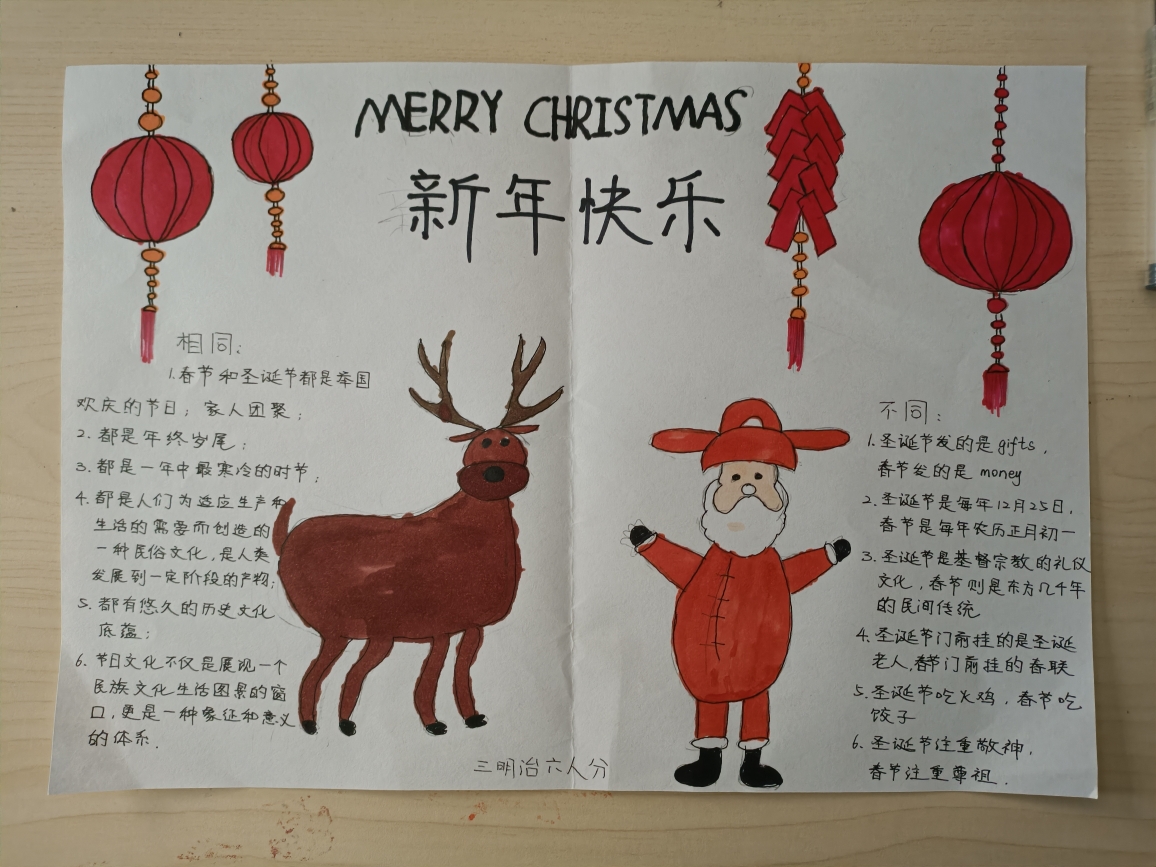 MERRY CHRISTMAS
新年快乐
相同：
1.春节和圣诞节都是举国
欢庆的节日；家人团聚；
2.都是年终岁尾；
3.都是一年中最寒冷的时节；
4.都是人们为适应生产和
生活的需要而创造的
一种民俗文化，是人类
发展到一定阶段的产物；
5.都有悠久的历史文化
底蕴；
6.节日文化不仅是展现一个
民族文化生活图景的窗
口，更是一种象征和意义
的体系．
不同：
1.圣诞节发的是gifts，
春节发的是 money
2.圣诞节是每年12月25日，
春节是每年农历正月初一
3.圣诞节是基督宗教的礼仪
文化，春节则是东方几千年
的民间传统
4.圣诞节门前挂的是圣诞
老人，春节门前挂的春联
5.圣诞节吃火鸡，春节吃
饺子
6.圣诞节注重敬神，
春节注重尊祖．
三明治六人分